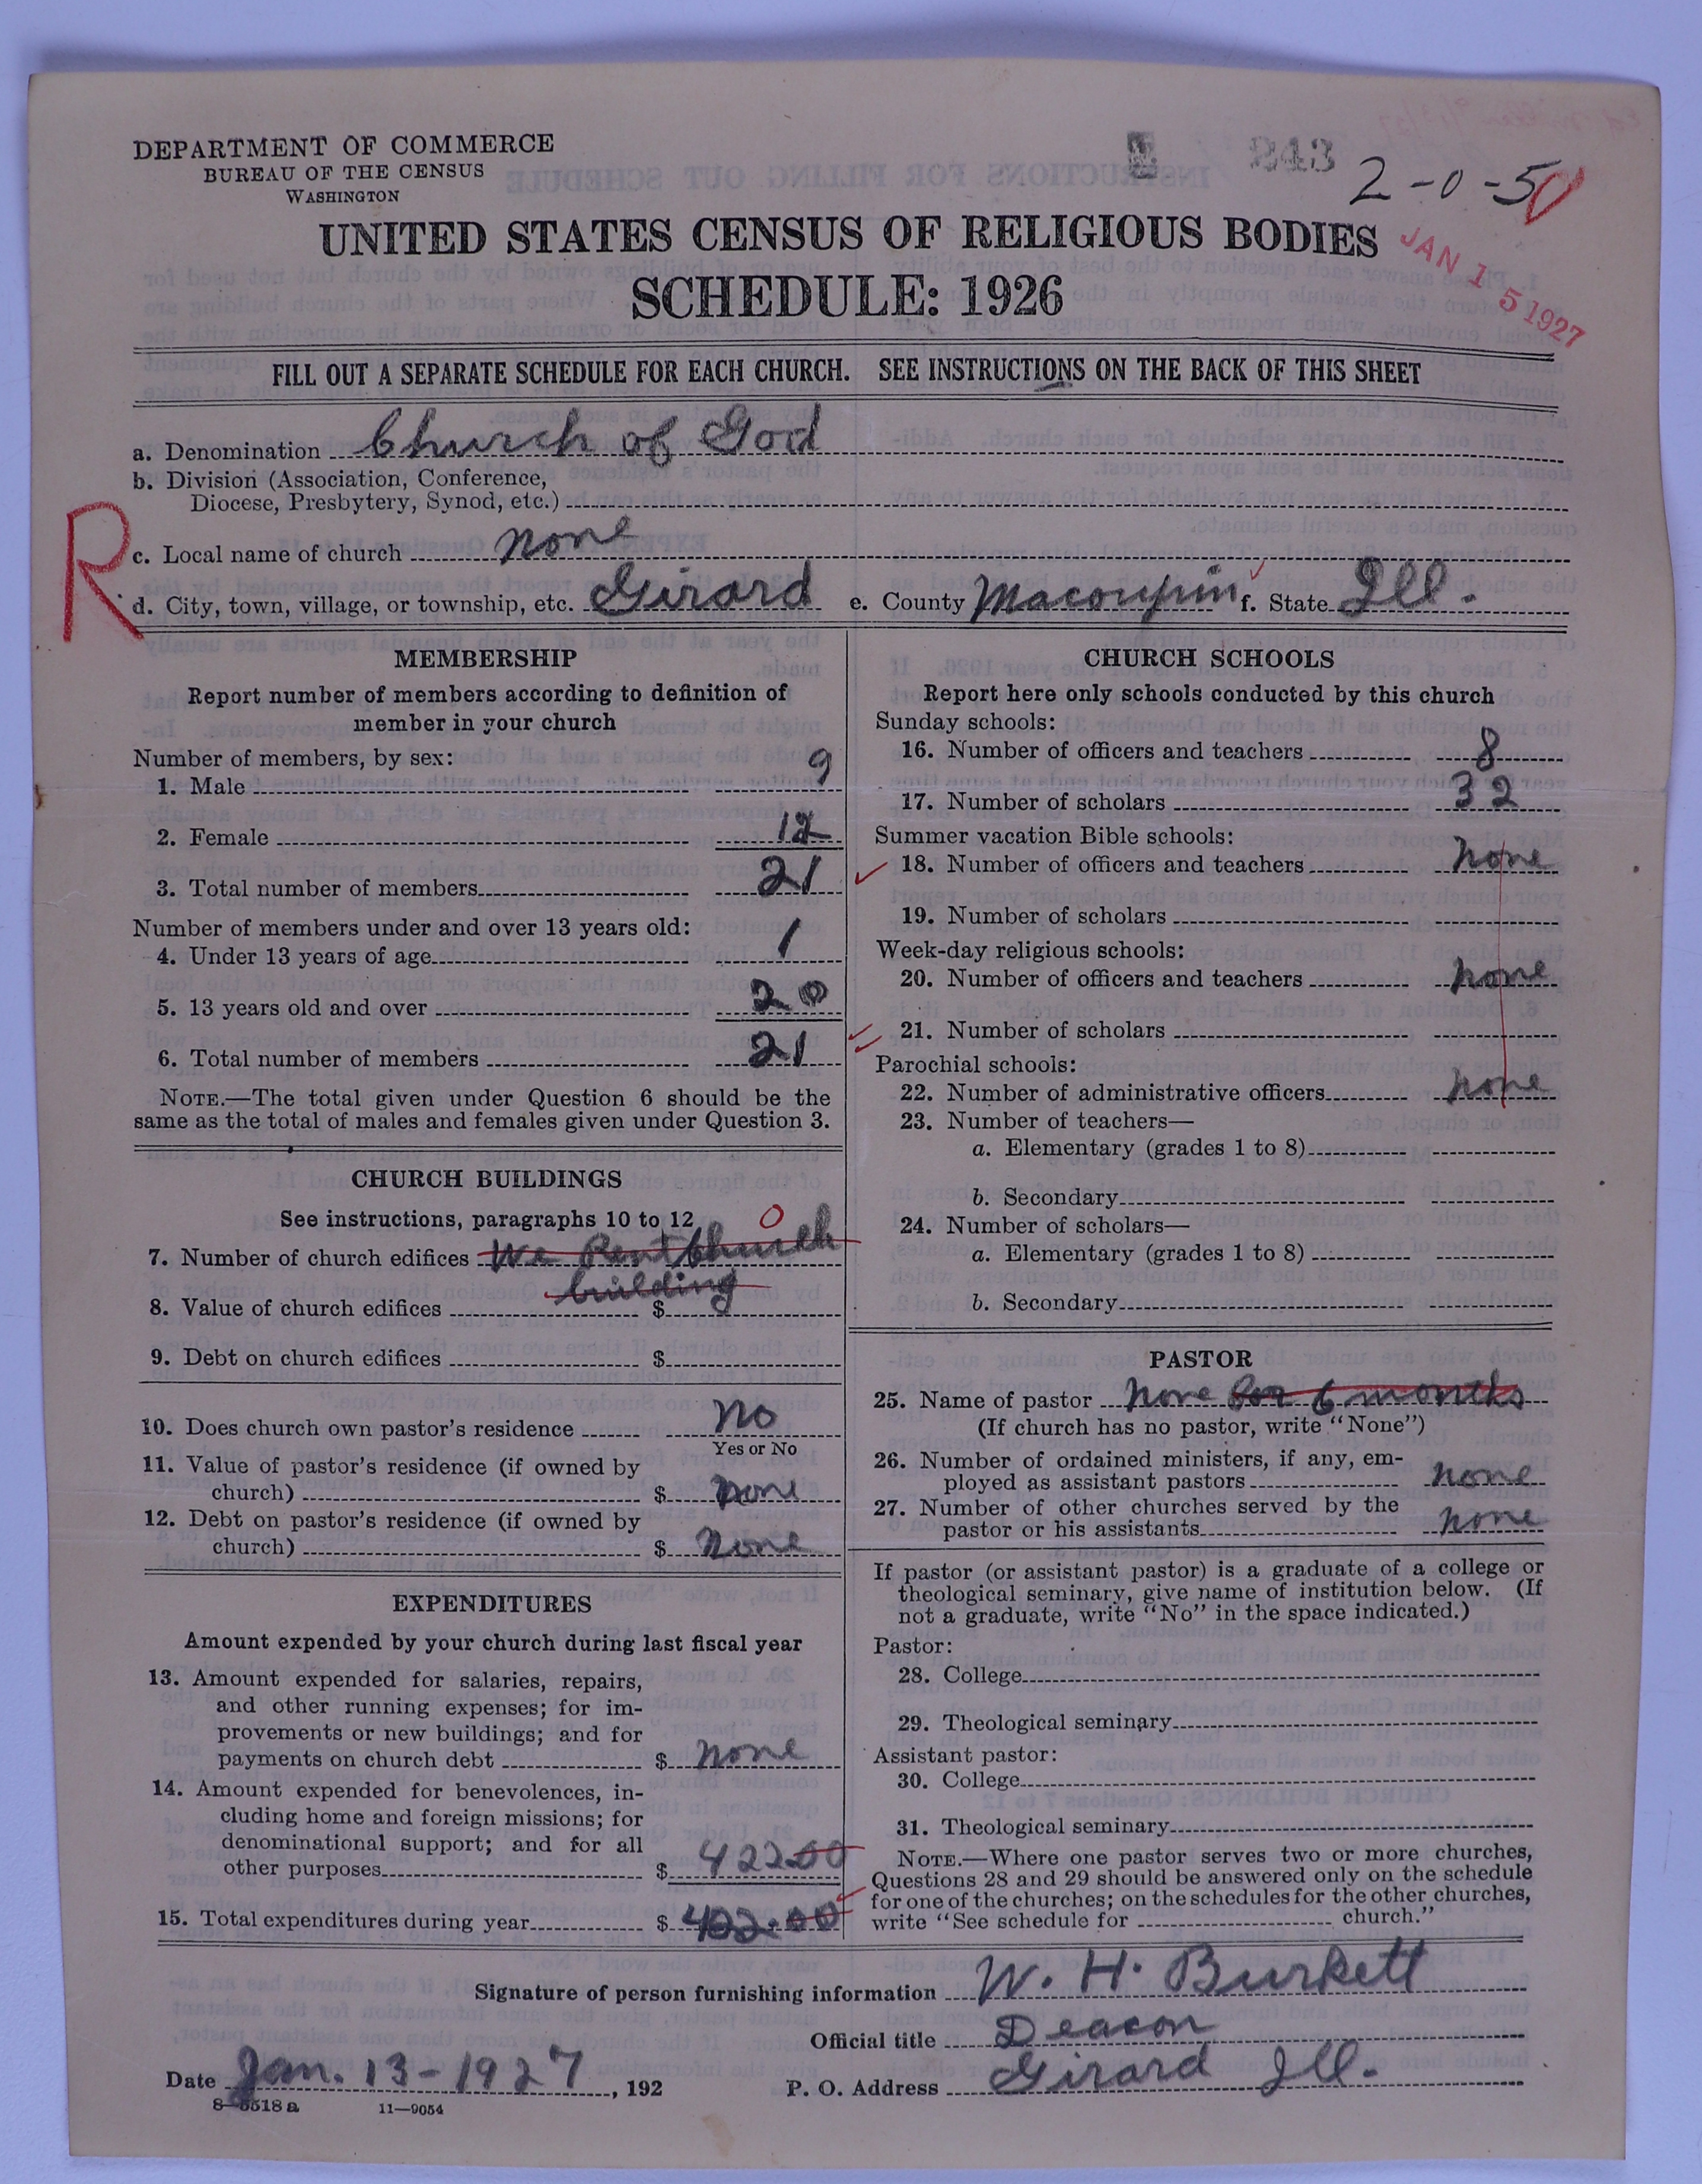 DEPARTMENT OF COMMERCE
BUREAU OF THE CENSUS
WASHINGTON
243
2-0-50
UNITED STATES CENSUS OF RELIGIOUS BODIES
SCHEDULE: 1926
JAN 15 1927
FILL OUT A SEPARATE SCHEDULE FOR EACH CHURCH. SEE INSTRUCTIONS ON THE BACK OF THIS SHEET
a. Denomination Church of God
b. Division (Association, Conference,
Diocese, Presbytery, Synod, etc.)
R
c. Local name of church none
d. City, town, village, or township, etc. Girard e. County Macoupin f. State Ill.
MEMBERSHIP
Report number of members according to definition of
member in your church
Number of members, by sex:
1. Male 9
2. Female 12
3. Total number of members 21
Number of members under and over 13 years old:
4. Under 13 years of age 1
5. 13 years old and over 20
6. Total number of members 21
NOTE.—The total given under Question 6 should be the
same as the total of males and females given under Question 3.
CHURCH BUILDINGS
See instructions, paragraphs 10 to 12
0
7. Number of church edifices We Rent Church
building
8. Value of church edifices $
9. Debt on church edifices $
10. Does church own pastor's residence no
Yes or No
11. Value of pastor's residence (if owned by
church) $ none
12. Debt on pastor's residence (if owned by
church) $ none
EXPENDITURES
Amount expended by your church during last fiscal year
13. Amount expended for salaries, repairs,
and other running expenses; for im-
provements or new buildings; and for
payments on church debt $ none
14. Amount expended for benevolences, in-
cluding home and foreign missions; for
denominational support; and for all
other purposes $ 422.00
15. Total expenditures during year $ 422.00
CHURCH SCHOOLS
Report here only schools conducted by this church
Sunday schools:
16. Number of officers and teachers 8
17. Number of scholars 32
Summer vacation Bible schools:
18. Number of officers and teachers none
19. Number of scholars
Week-day religious schools:
20. Number of officers and teachers none
21. Number of scholars
Parochial schools:
22. Number of administrative officers none
23. Number of teachers—
a. Elementary (grades 1 to 8)
b. Secondary
24. Number of scholars—
a. Elementary (grades 1 to 8)
b. Secondary
PASTOR
25. Name of pastor none for 6 months
(If church has no pastor, write "None")
26. Number of ordained ministers, if any, em-
ployed as assistant pastors none
27. Number of other churches served by the
pastor or his assistants none
If pastor (or assistant pastor) is a graduate of a college or
theological seminary, give name of institution below. (If
not a graduate, write "No" in the space indicated.)
Pastor:
28. College
29. Theological seminary
Assistant pastor:
30. College
31. Theological seminary
NOTE.—Where one pastor serves two or more churches,
Questions 28 and 29 should be answered only on the schedule
for one of the churches; on the schedules for the other churches,
write "See schedule for church."
Signature of person furnishing information W. H. Burkett
Official title Deacon
Date Jan. 13-1927, 192 P. O. Address Girard Ill.
8-5518 a 11-9054